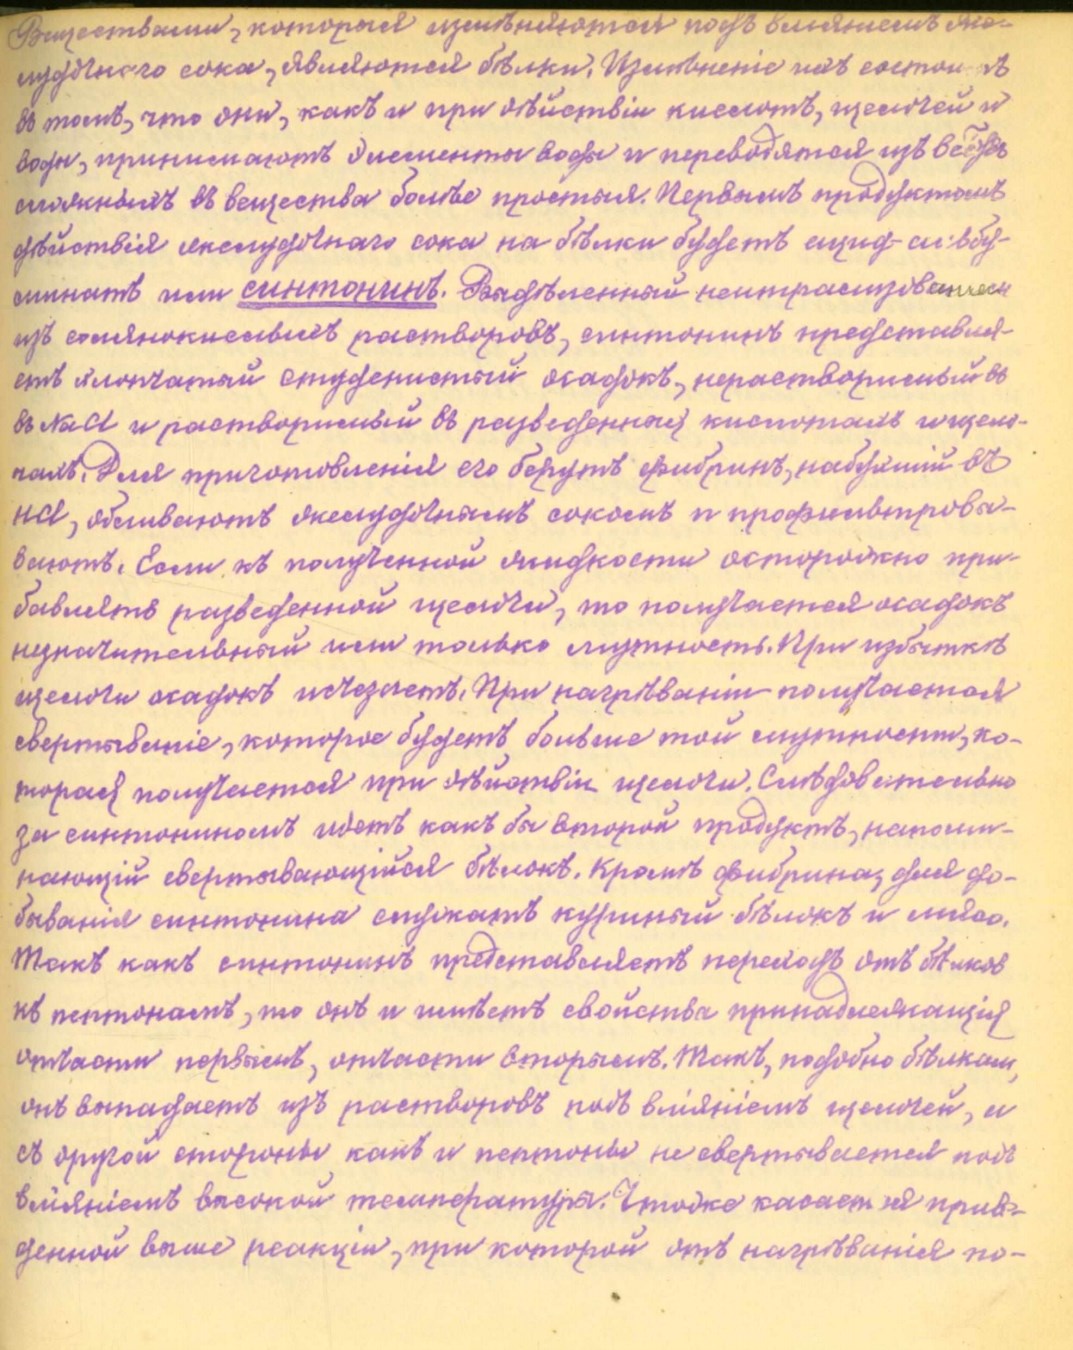 Веществами, которыя измѣняются подъ вліяніемъ же-
лудочнаго сока, являются бѣлки. Измѣненіе ихъ состоитъ
въ томъ, что они, какъ и при дѣйствіи кислотъ, щелочей и
воды, принимаютъ элементы воды и переводятся изъ
сложныхъ въ вещества болѣе простыя. Первымъ продуктомъ
дѣйствія желудочнаго сока на бѣлки будетъ ацид-альбу-
минатъ или синтонинъ. Выдѣленный нейтрализованіемъ
изъ солянокислыхъ растворовъ, синтонинъ представля-
етъ хлопчатый студенистый осадокъ, нерастворимый въ
въ NaCl и растворимый въ разведенныхъ кислотахъ и щело-
чахъ. Для приготовленія его берутъ фибринъ, набухшій въ
HCl, обливаютъ желудочнымъ сокомъ и профильтровы-
ваютъ. Если къ полученной жидкости осторожно при-
бавлять разведенной щелочи, то получается осадокъ
незначительный или только мутность. При избыткѣ
щелочи осадокъ исчезаетъ. При нагрѣваніи получается
свертываніе, которое будетъ больше той мутности, ко-
торая получается при дѣйствіи щелочи. Слѣдовательно
за синтониномъ идетъ какъ бы второй продуктъ, напоми-
нающій свертывающійся бѣлокъ. Кромѣ фибрина, для до-
быванія синтонина служатъ куриный бѣлокъ и мясо.
Такъ какъ синтонинъ представляетъ переходъ отъ бѣлковъ
къ пептонамъ, то онъ и имѣетъ свойства принадлежащія
отчасти первымъ, отчасти вторымъ. Такъ, подобно бѣлкамъ,
онъ выпадаетъ изъ растворовъ подъ вліяніемъ щелочей, и
съ другой стороны какъ и пептоны не свертывается подъ
вліяніемъ высокой температуры. Чтоже касается приве-
денной выше реакціи, при которой отъ нагрѣванія по-